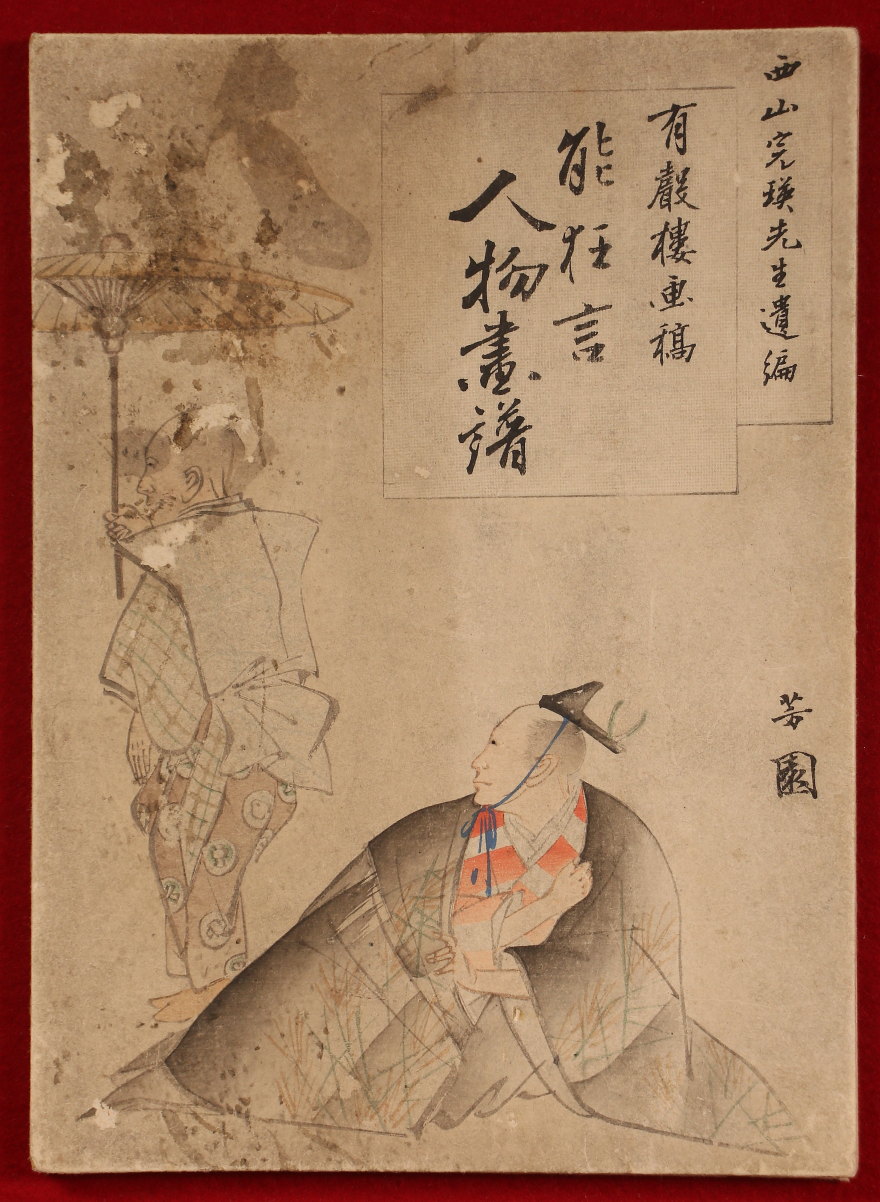 西山完瑛先生遺編
有聲樓画稿
能狂言
人物畫譜
芳園